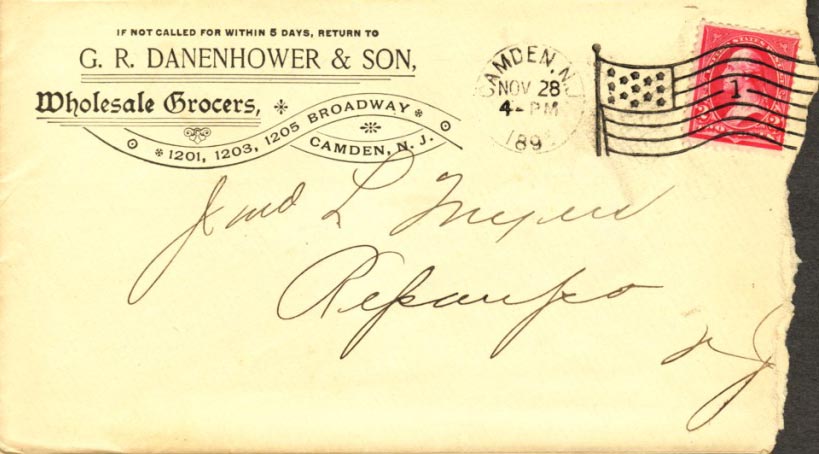 IF NOT CALLED FOR WITHIN 5 DAYS, RETURN TO
G. R. DANENHOWER & SON,
Wholesale Grocers,
1201, 1203, 1205 BROADWAY
CAMDEN, N. J.
CAMDEN, N.J.
NOV 28
4-PM
189
1
2 2
L
Repaupo
N J